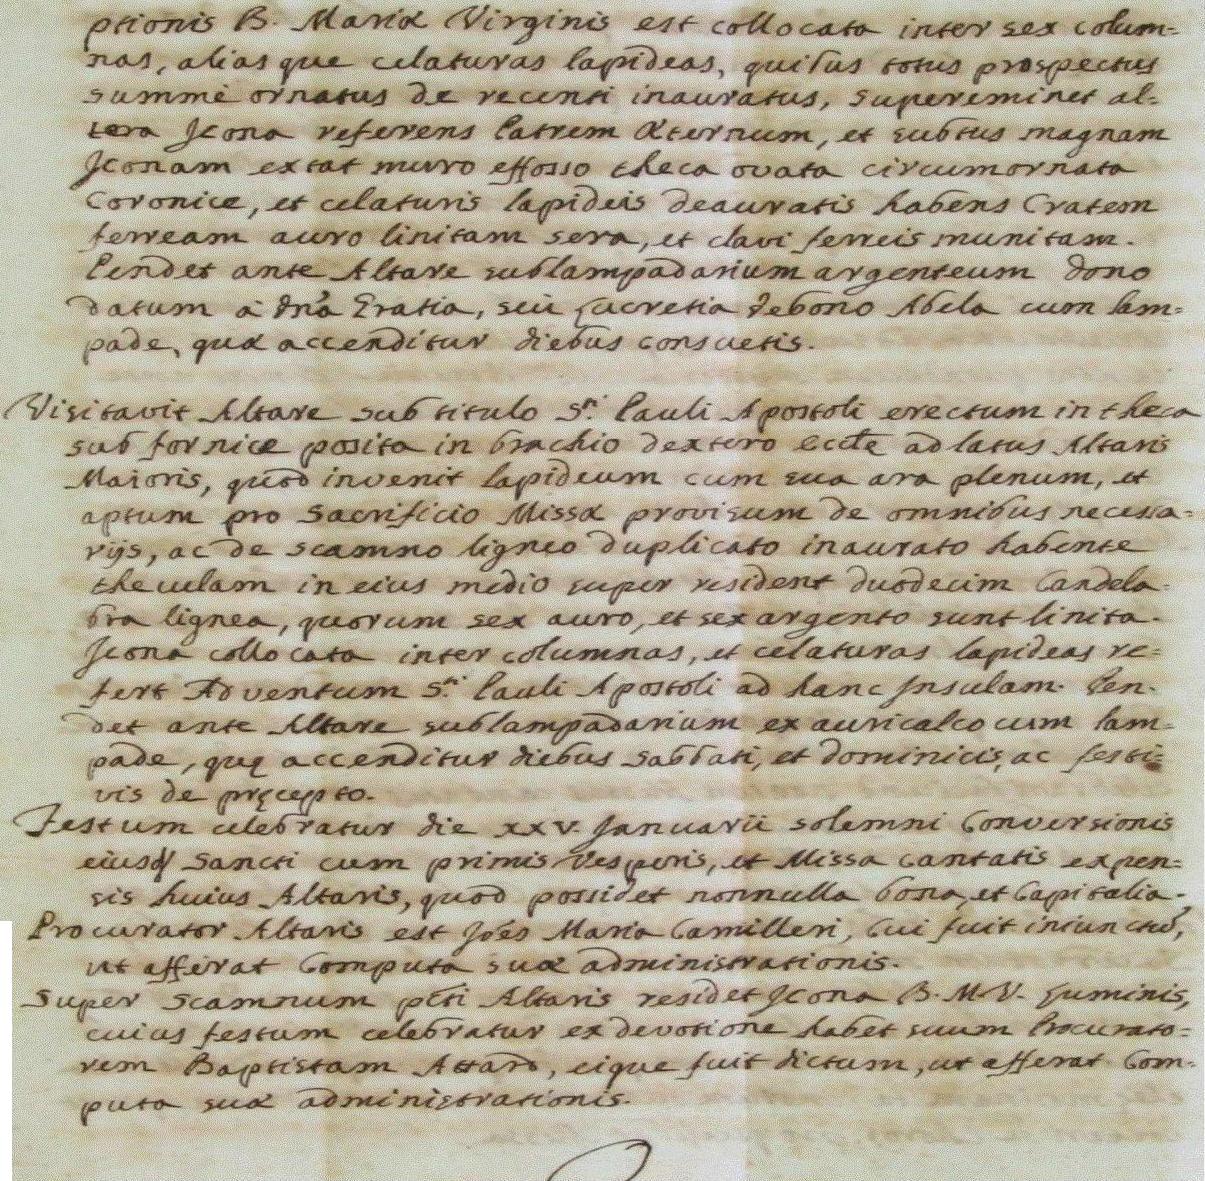 ptionis B. Mariæ Virginis est collocata inter sex colum=
nas, alias que celaturas lapideas, quibus totus prospectus
summè ornatus de recenti inauratus, supereminet al=
tera Jcona referens Patrem Æternum, et subtus magnam
Jconam extat muro effosso theca ovata circumornata
Coronice, et celaturis lapideis deauratis habens Cratem
ferream auro linitam sera, et clavi ferreis munitam.
Pendet ante Altare sublampadarium argenteum dono
datum à Dña Gratia, seù Lucretia Debono Abela cum lam=
pade, quæ accenditur diebus consuetis.
Visitavit Altare sub titulo S.ti Pauli Apostoli erectum in theca
sub fornice posita in brachio dextero eccłæ ad latus Altaris
Maioris, quod invenit lapideum cum sua ara plenum, et
aptum pro Sacrificio Missæ provisum de omnibus necessa=
rijs, ac de scamno ligneo duplicato inaurato habente
theculam in eius medio super resident duodecim Candela=
bra lignea, quorum sex auro, et sex argento sunt linita.
Jcona collocata inter columnas, et celaturas lapideas re=
fert Adventum S.ti Pauli Apostoli ad hanc Jnsulam. Pen=
det ante Altare sublampadarium ex auricalco cum lam=
pade, quę accenditur diebus Sabbati, et dominicis, ac festi=
vis de pręcepto.
Festum celebratur die XXV. Januarii solemni Conversionis
eiusd Sancti cum primis Vesperis, et Missa cantatis expen=
sis huius Altaris, quod possidet nonnulla bona, et Capitalia.
Procurator Altaris est Joẽs Maria Camilleri, Cui fuit iniunctũ,
ut afferat Computa suæ administrationis.
Super Scamnum płti Altaris residet Jcona B. M. V. Luminis,
cuius festum celebratur ex devotione habet suum Procurato=
rem Baptistam Attard, eique fuit dictum, ut afferat Com=
puta suæ administrationis.